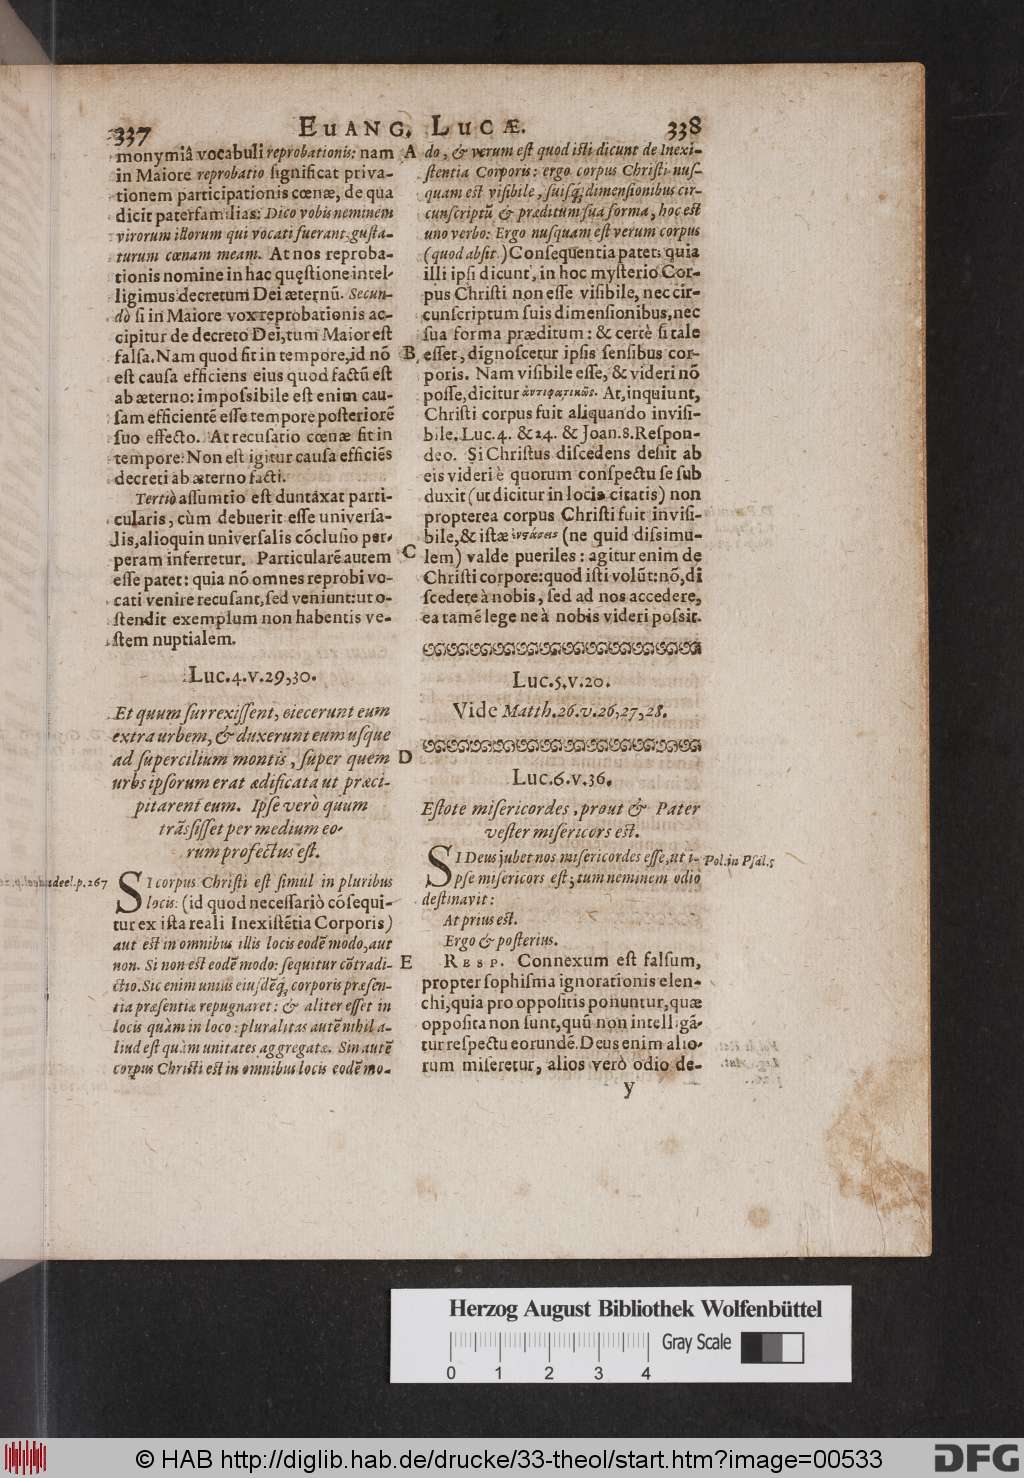 337
EUANG. LUCÆ.
338
monymiâ vocabuli reprobationis: nam
in Maiore reprobatio ſignificat priva-
tionem participationis cœnæ, de qua
dicit paterfamilias: Dico vobis neminem
virorum iſtorum qui vocati fuerant, guſta-
turum cœnam meam. At nos reproba-
tionis nomine in hac quęſtione intel-
ligimus decretum Dei æternū. Secun-
dò ſi in Maiore vox reprobationis ac-
cipitur de decreto Dei, tum Maior eſt
falſa. Nam quod fit in tempore, id nō
eſt cauſa efficiens eius quod factū eſt
ab æterno: impoſsibile eſt enim cau-
ſam efficientē eſſe tempore poſteriorē
ſuo effecto. At recuſatio cœnæ fit in
tempore: Non eſt igitur cauſa efficiēs
decreti ab æterno facti.
Tertiò aſſumtio eſt duntaxat parti-
cularis, cùm debuerit eſſe univerſa-
lis, alioquin univerſalis cōcluſio per-
peram inferretur. Particularē autem
eſſe patet: quia nō omnes reprobi vo-
cati venire recuſant, ſed veniunt: ut o-
ſtendit exemplum non habentis ve-
ſtem nuptialem.
Luc. 4. v. 29, 30.
Et quum ſurrexiſſent, eiecerunt eum
extra urbem, & duxerunt eum uſque
ad ſupercilium montis, ſuper quem
urbs ipſorum erat ædificata ut præci-
pitarent eum. Ipſe verò quum
trāſiſſet per medium eo-
rum profectus eſt.
deel. p. 267
SI corpus Chriſti eſt ſimul in pluribus
locis: (id quod neceſſariò cōſequi-
tur ex iſta reali Inexiſtētia Corporis)
aut eſt in omnibus illis locis eodē modo, aut
non. Si non eſt eodē modo: ſequitur cōtradi-
ctio. Sic enim unius eiuſdēq́; corporis præſen-
tia præſentiæ repugnaret: & aliter eſſet in
locis quàm in loco: pluralitas autē nihil a-
liud eſt quàm unitates aggregatæ. Sin autē
corpus Chriſti eſt in omnibus locis eodē mo-
A
B
C
D
E
do, & verum eſt quod iſti dicunt de Inexi-
ſtentia Corporis: ergo corpus Chriſti nuſ-
quam eſt viſibile, ſuiſq́; dimenſionibus cir-
cunſcriptū & præditum ſua forma, hoc eſt
uno verbo: Ergo nuſquam eſt verum corpus
(quod abſit.) Conſequentia patet: quia
illi ipſi dicunt, in hoc myſterio Cor-
pus Chriſti non eſſe viſibile, nec cir-
cunſcriptum ſuis dimenſionibus, nec
ſua forma præditum: & certè ſi tale
eſſet, dignoſcetur ipſis ſenſibus cor-
poris. Nam viſibile eſſe, & videri nō
poſſe, dicitur ἀντιφατικῶς. At, inquiunt,
Chriſti corpus fuit aliquando inviſi-
bile. Luc. 4. & 24. & Joan. 8. Reſpon-
deo. Si Chriſtus diſcedens deſiit ab
eis videri è quorum conſpectu ſe ſub
duxit (ut dicitur in locis citatis) non
propterea corpus Chriſti fuit inviſi-
bile, & iſtæ ἐνςάσεις (ne quid diſsimu-
lem) valde pueriles: agitur enim de
Chriſti corpore: quod iſti volūt: nō, di
ſcedere à nobis, ſed ad nos accedere,
ea tamē lege ne à nobis videri poſsit.
Luc. 5. v. 20.
Vide Matth. 26. v. 26, 27, 28.
Luc. 6. v. 36.
Eſtote miſericordes, prout & Pater
veſter miſericors eſt.
SI Deus jubet nos miſericordes eſſe, ut i-
pſe miſericors eſt; tum neminem odio
deſtinavit:
Pol. in Pſal. 5
At prius eſt.
Ergo & poſterius.
RESP. Connexum eſt falſum,
propter ſophiſma ignorationis elen-
chi, quia pro oppoſitis ponuntur, quæ
oppoſita non ſunt, quū non intelligā-
tur reſpectu eorundē. Deus enim alio-
rum miſeretur, alios verò odio de-
y
Herzog August Bibliothek Wolfenbüttel
Gray Scale
0 1 2 3 4
© HAB http://diglib.hab.de/drucke/33-theol/start.htm?image=00533
DFG